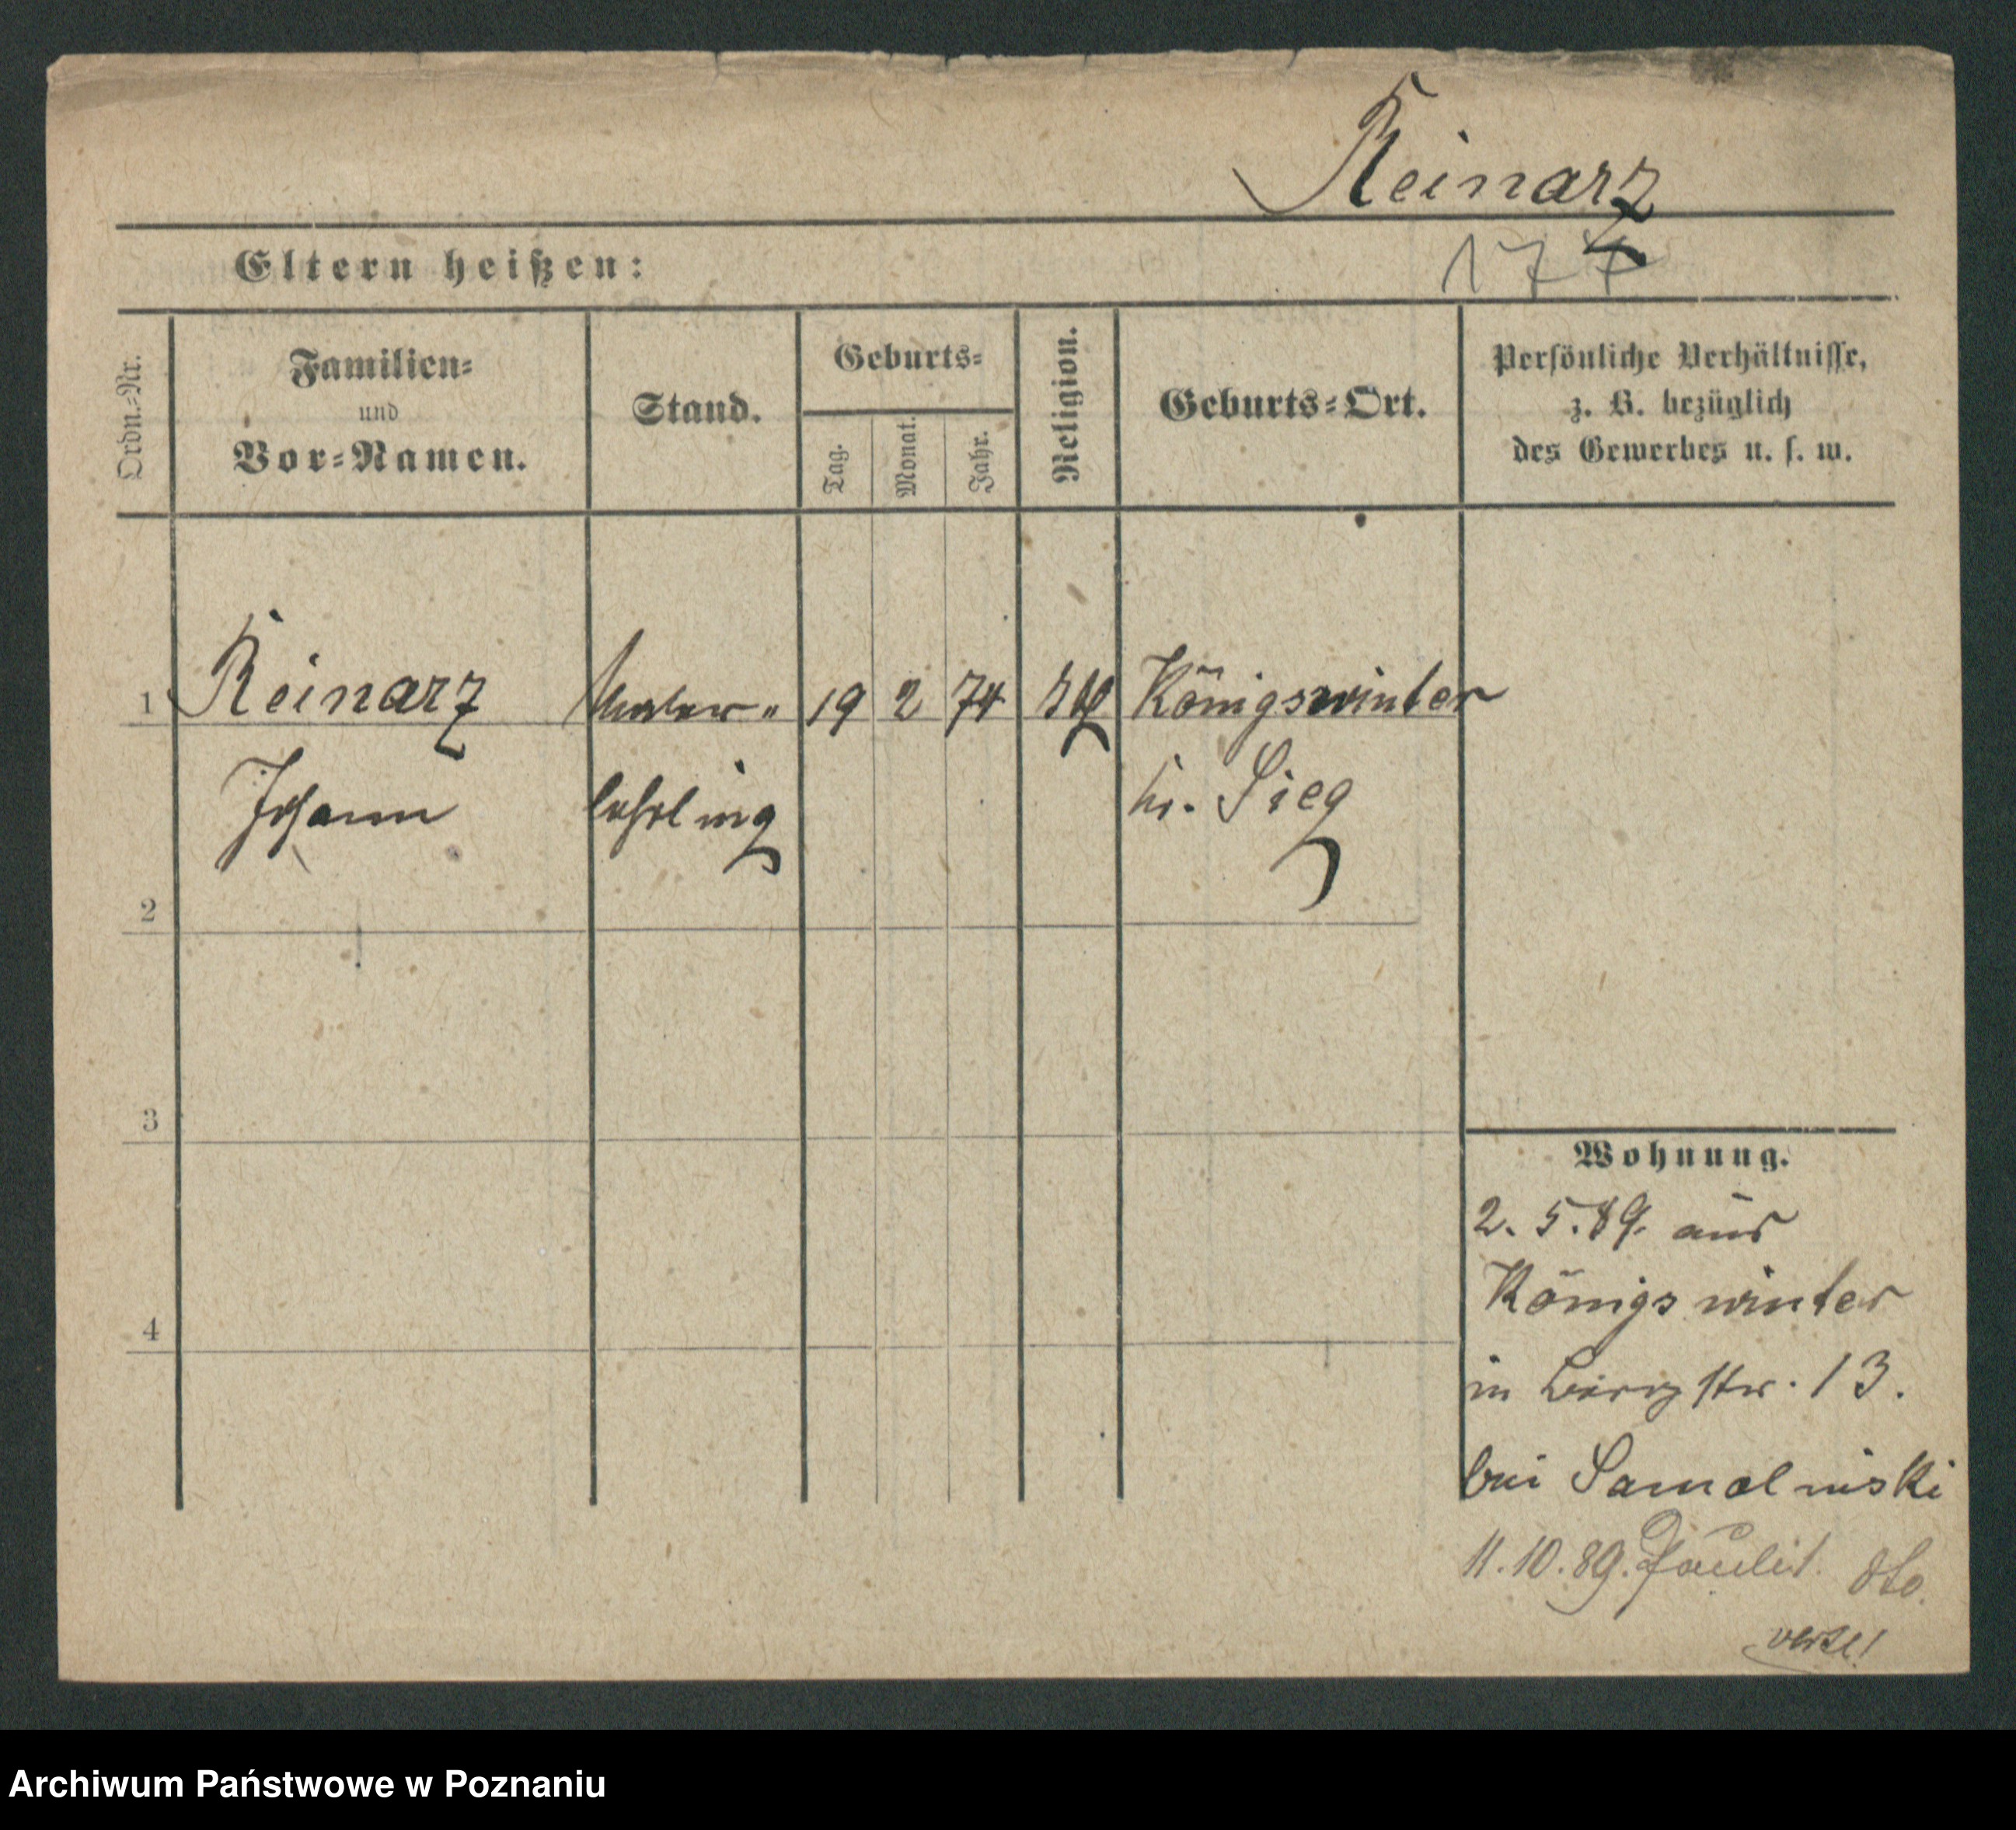 Reinarz
177
Eltern heißen:
Ordn.-Nr.
Familien-
und
Vor-Namen.
Stand.
Geburts-
Tag.
Monat.
Jahr.
Religion.
Geburts-Ort.
Persönliche Verhältnisse,
z. B. bezüglich
des Gewerbes u. s. w.
1 Reinarz Maler- 19 2 74 Königswinter
Johann lehrling Kr. Sieg
2
3
4
Wohnung.
2. 5. 89. aus
Königswinter
in Bergstr. 13.
bei Samolniski
11.10.89. Paulist. dto.
verte!
Archiwum Państwowe w Poznaniu